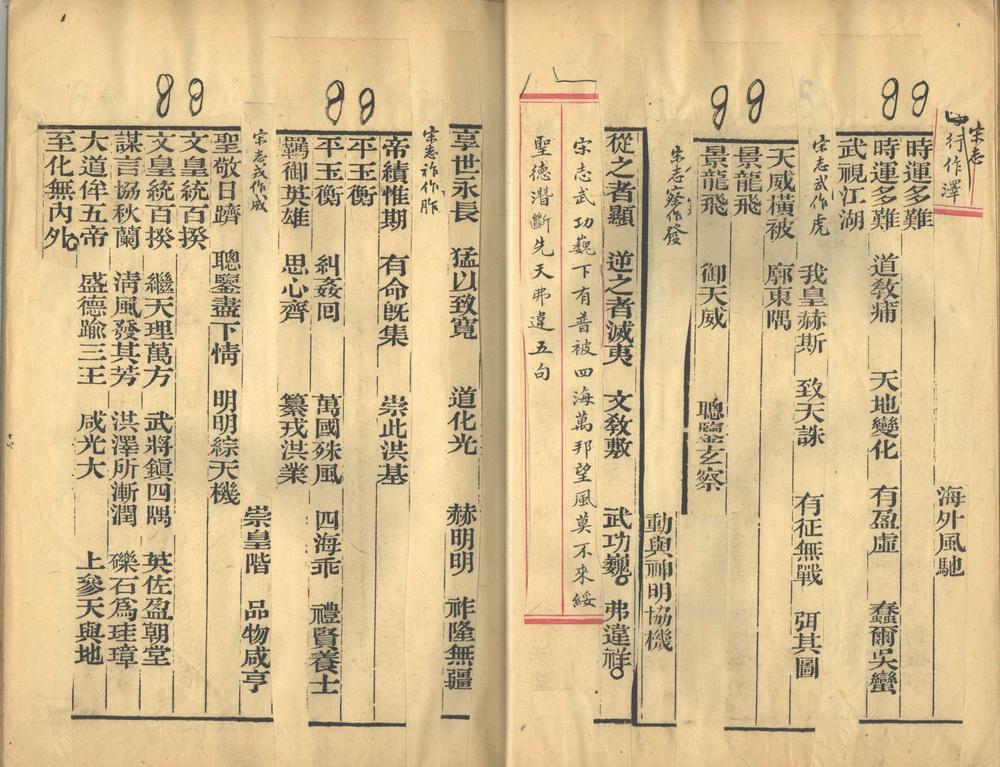 宋志
行作澤
海外風馳
時運多難
時運多難　道敎痡　天地變化　有盈虛　蠢爾吳蠻
武視江湖
宋志武作虎
我皇赫斯　致天誅　有征無戰　弭其圖
天威橫被　廓東隅
景龍飛
景龍飛　御天威　聰鑒玄察
宋志察作發
動與神明協機
從之者顯　逆之者滅夷　文敎敷　武功巍。弗違祥。
宋志武功巍下有普被四海萬邦望風莫不來綏
聖德潛斷先天弗違五句
享世永長　猛以致寬　道化光　赫明明　祚隆無疆
宋志祚作胙
帝績惟期　有命旣集　崇此洪基
平玉衡
平玉衡　糾姦回　萬國殊風　四海乖　禮賢養士
羈御英雄　思心齊　纂戎洪業
宋志戎作咸
崇皇階　品物咸亨
聖敬日躋　聰鑒盡下情　明明綜天機
文皇統百揆
文皇統百揆　繼天理萬方　武將鎭四隅　英佐盈朝堂
謀言協秋蘭　淸風發其芳　洪澤所漸潤　礫石爲珪璋
大道侔五帝　盛德踰三王　咸光大　上參天與地
至化無內外。